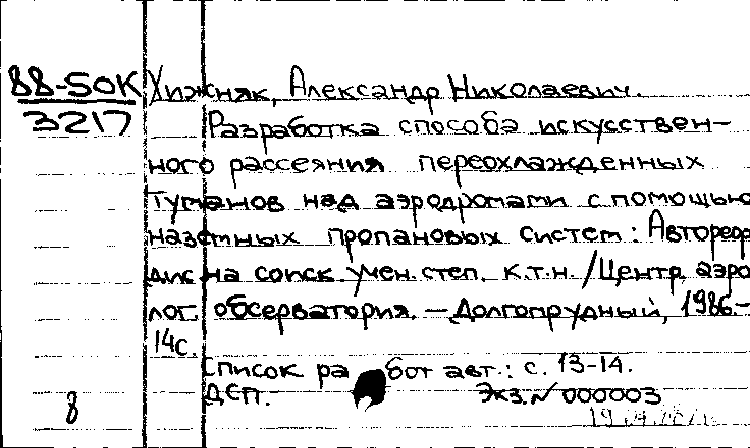 88-5ОК Хижняк, Александр Николаевич.
3217 Разработка способа искусствен-
ного рассеяния переохлажденных
туманов над аэродромами с помощью
наземных пропановых систем: Автореф
дис на соиск. учен. степ. к.т.н. / Центр. аэро
лог. обсерватория. — Долгопрудный, 1986.-
14с.
Список работ авт.: с. 13-14.
8 ДСП. Экз. № 000003